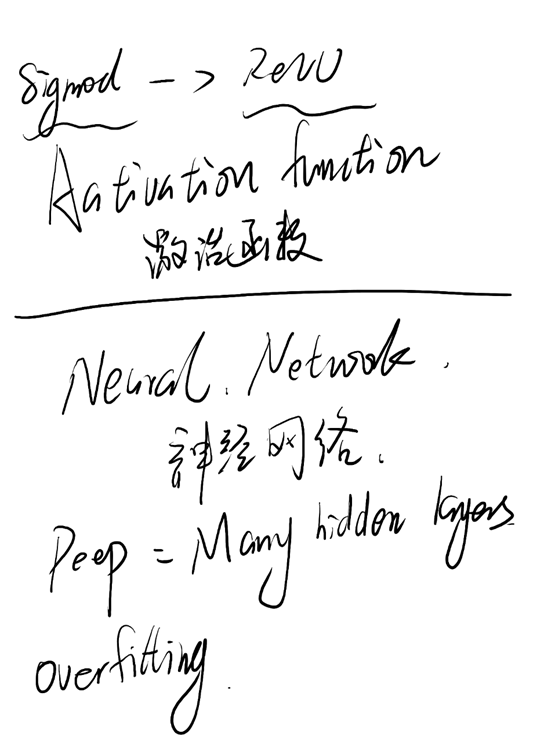 Sigmod -> ReLU
Activation function
激活函数
Neural. Network.
神经网络.
Deep = Many hidden layers
overfitting.